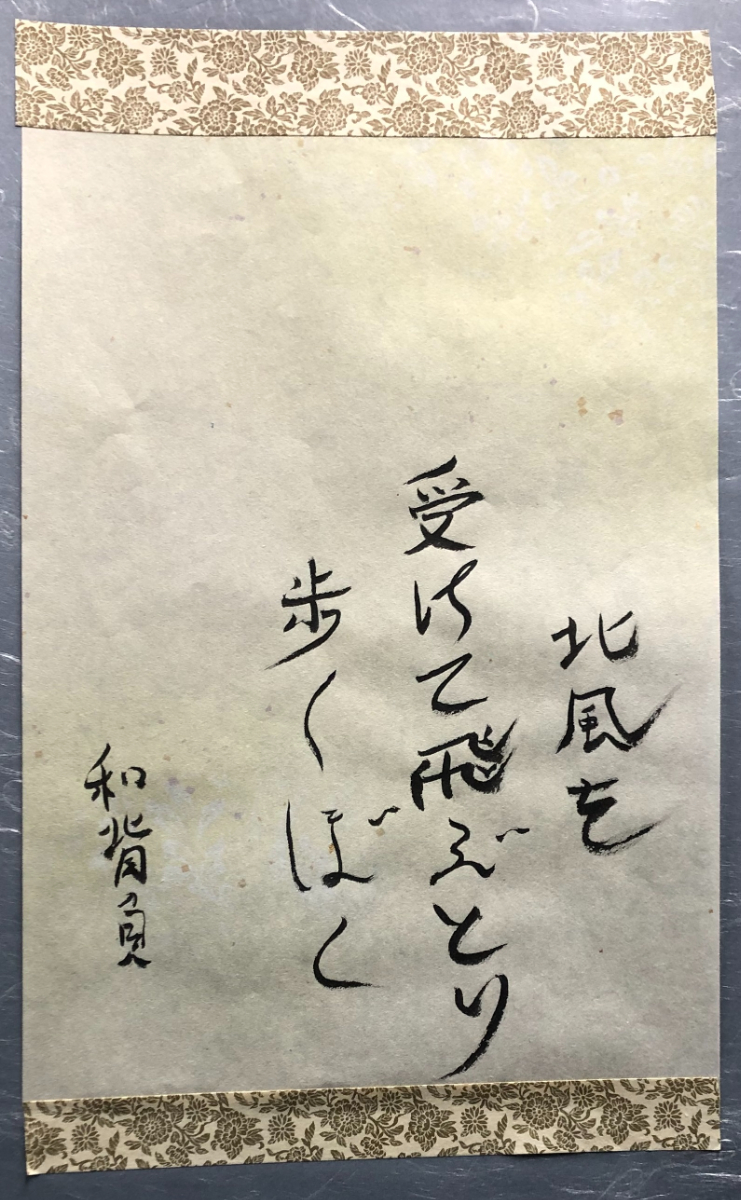 北風を
受けて飛ぶとり
歩くぼく
和背負